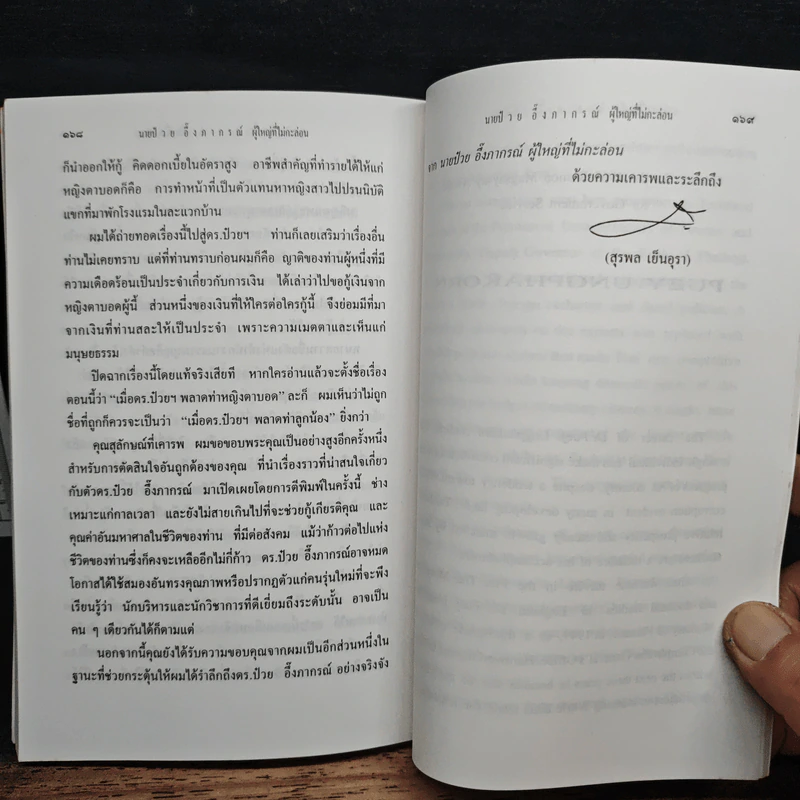 ๑๖๘ นายป๋วย อึ๊งภากรณ์ ผู้ใหญ่ที่ไม่กะล่อน
ก็นำออกให้กู้ คิดดอกเบี้ยในอัตราสูง อาชีพสำคัญที่ทำรายได้ให้แก่
หญิงตาบอดก็คือ การทำหน้าที่เป็นตัวแทนหาหญิงสาวไปปรนนิบัติ
แขกที่มาพักโรงแรมในละแวกบ้าน
ผมได้ถ่ายทอดเรื่องนี้ไปสู่ดร.ป๋วยฯ ท่านก็เลยเสริมว่าเรื่องอื่น
ท่านไม่เคยทราบ แต่ที่ท่านทราบก่อนผมก็คือ ญาติของท่านผู้หนึ่งที่มี
ความเดือดร้อนเป็นประจำเกี่ยวกับการเงิน ได้เล่าว่าไปขอกู้เงินจาก
หญิงตาบอดผู้นี้ ส่วนหนึ่งของเงินที่ให้ใครต่อใครกู้นี้ จึงย่อมมีที่มา
จากเงินที่ท่านสละให้เป็นประจำ เพราะความเมตตาและเห็นแก่
มนุษยธรรม
ปิดฉากเรื่องนี้โดยแท้จริงเสียที หากใครอ่านแล้วจะตั้งชื่อเรื่อง
ตอนนี้ว่า “เมื่อดร.ป๋วยฯ พลาดท่าหญิงตาบอด” ละก็ ผมเห็นว่าไม่ถูก
ชื่อที่ถูกก็ควรจะเป็นว่า “เมื่อดร.ป๋วยฯ พลาดท่าลูกน้อง” ยิ่งกว่า
คุณสุลักษณ์ที่เคารพ ผมขอขอบพระคุณเป็นอย่างสูงอีกครั้งหนึ่ง
สำหรับการตัดสินใจอันถูกต้องของคุณ ที่นำเรื่องราวที่น่าสนใจเกี่ยว
กับตัวดร.ป๋วย อึ๊งภากรณ์ มาเปิดเผยโดยการตีพิมพ์ในครั้งนี้ ช่าง
เหมาะแก่กาลเวลา และยังไม่สายเกินไปที่จะช่วยกู้เกียรติคุณ และ
คุณค่าอันมหาศาลในชีวิตของท่าน ที่มีต่อสังคม แม้ว่าก้าวต่อไปแห่ง
ชีวิตของท่านซึ่งก็คงจะเหลืออีกไม่กี่ก้าว ดร.ป๋วย อึ๊งภากรณ์อาจหมด
โอกาสได้ใช้สมองอันทรงคุณภาพหรือปรากฏตัวแก่คนรุ่นใหม่ที่จะพึง
เรียนรู้ว่า นักบริหารและนักวิชาการที่ดีเยี่ยมถึงระดับนั้น อาจเป็น
คน ๆ เดียวกันได้ก็ตามแต่
นอกจากนี้คุณยังได้รับความขอบคุณจากผมเป็นอีกส่วนหนึ่งใน
ฐานะที่ช่วยกระตุ้นให้ผมได้รำลึกถึงดร.ป๋วย อึ๊งภากรณ์ อย่างจริงจัง
นายป๋วย อึ๊งภากรณ์ ผู้ใหญ่ที่ไม่กะล่อน ๑๖๙
จาก นายป๋วย อึ๊งภากรณ์ ผู้ใหญ่ที่ไม่กะล่อน
ด้วยความเคารพและระลึกถึง
(สุรพล เย็นอุรา)